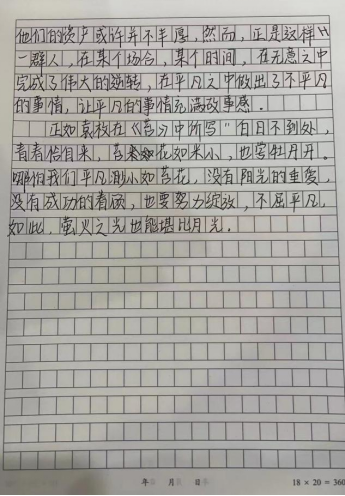 他们的资产或许并不丰厚，然而，正是这样的
一群人，在某个场合，某个时间，在无意之中
完成了伟大的逆转，在平凡之中做出了不平凡
的事情，让平凡的事情充满故事感。
正如袁枚在《苔》中所写"白日不到处，
青春恰自来，苔花如米小，也学牡丹开。
哪怕我们平凡渺小如苔花，没有阳光的垂爱，
没有成功的眷顾，也要努力绽放，不屈平凡，
如此，萤火之光也能堪比月光。
年 月 日
18 × 20 = 360